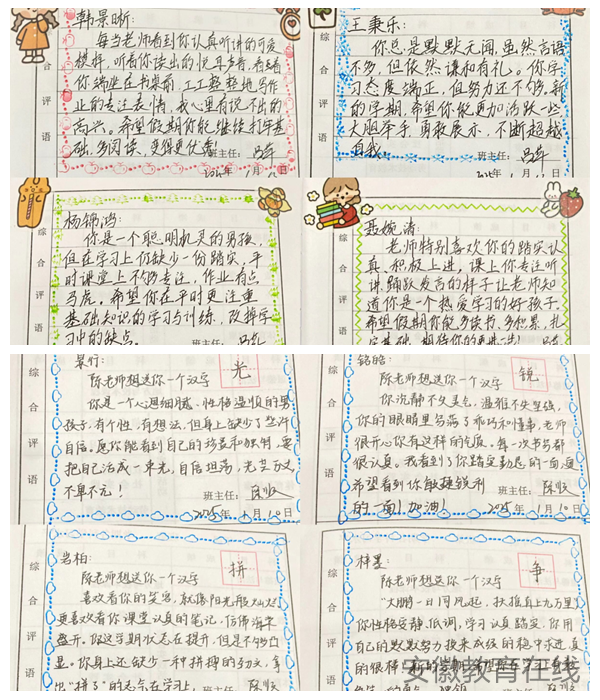 韩景昕:
每当老师看到你认真听讲的可爱
模样,听着你读出的悦耳声音,看着
你端坐在书桌前,工工整整地写作
业的专注表情,我心里有说不出的
高兴。希望假期你能继续打牢基
础,多阅读,变得更优秀!
班主任:
综合评语
王秉乐:
你总是默默无闻,虽然言语
不多,但依然谦和有礼。你学
习态度端正,但努力还不够,新
的学期,希望你能更加活跃一些
大胆举手,勇敢展示,不断超越
自我。
班主任:
综合评语
杨锦鸿:
你是一个聪明机灵的男孩,
但在学习上你缺少一份踏实,平
时课堂上不够专注,作业有点
马虎。希望你在平时更注重
基础知识的学习与训练,改掉学
习中的缺点。
班主任:
综合评语
聂婉清:
老师特别喜欢你的踏实认
真、积极上进,课上你专注听
讲、踊跃发言的样子让老师知
道你是一个热爱学习的好孩子。
希望假期你能多读书,多积累,扎
实基础,期待你的更进一步!
综合评语
陈老师想送你一个汉字 光
你是一个心思细腻、性格温顺的男
孩子,有个性,有想法,但身上缺少了些许
自信。愿你能看到自己的珍贵和独特,要
把自己活成一束光,自信坦荡,光芒万丈,
不卑不亢!
班主任:
2025年1月10日
综合评语
铭皓:
陈老师想送你一个汉字 锐
你沉静不失灵气,温雅不失坚强,
你的眼睛里写满了乖巧和懂事,老师
很开心你有这样的气质。每一次书写都
很认真。我看到了你踏实勤恳的一面,更
希望看到你敏捷锐利
的一面!加油!
班主任:
2025年1月10日
综合评语
岩柏:
陈老师想送你一个汉字 拼
喜欢看你的笑容,就像阳光般灿烂
更喜欢看你课堂认真的笔记,信佛海平
盛开。你这学期状态在提升,但是不够凸
显。你身上还缺少一种拼搏的劲头,拿
出“拼了”的志气在学习上,
综合评语
梓墨:
陈老师想送你一个汉字 争
“大鹏一日同风起,扶摇直上九万里”
你性格安静、低调,学习认真踏实,你用
自己的默默努力换来成绩的稳中求进,真
的很棒!
安徽教育在线